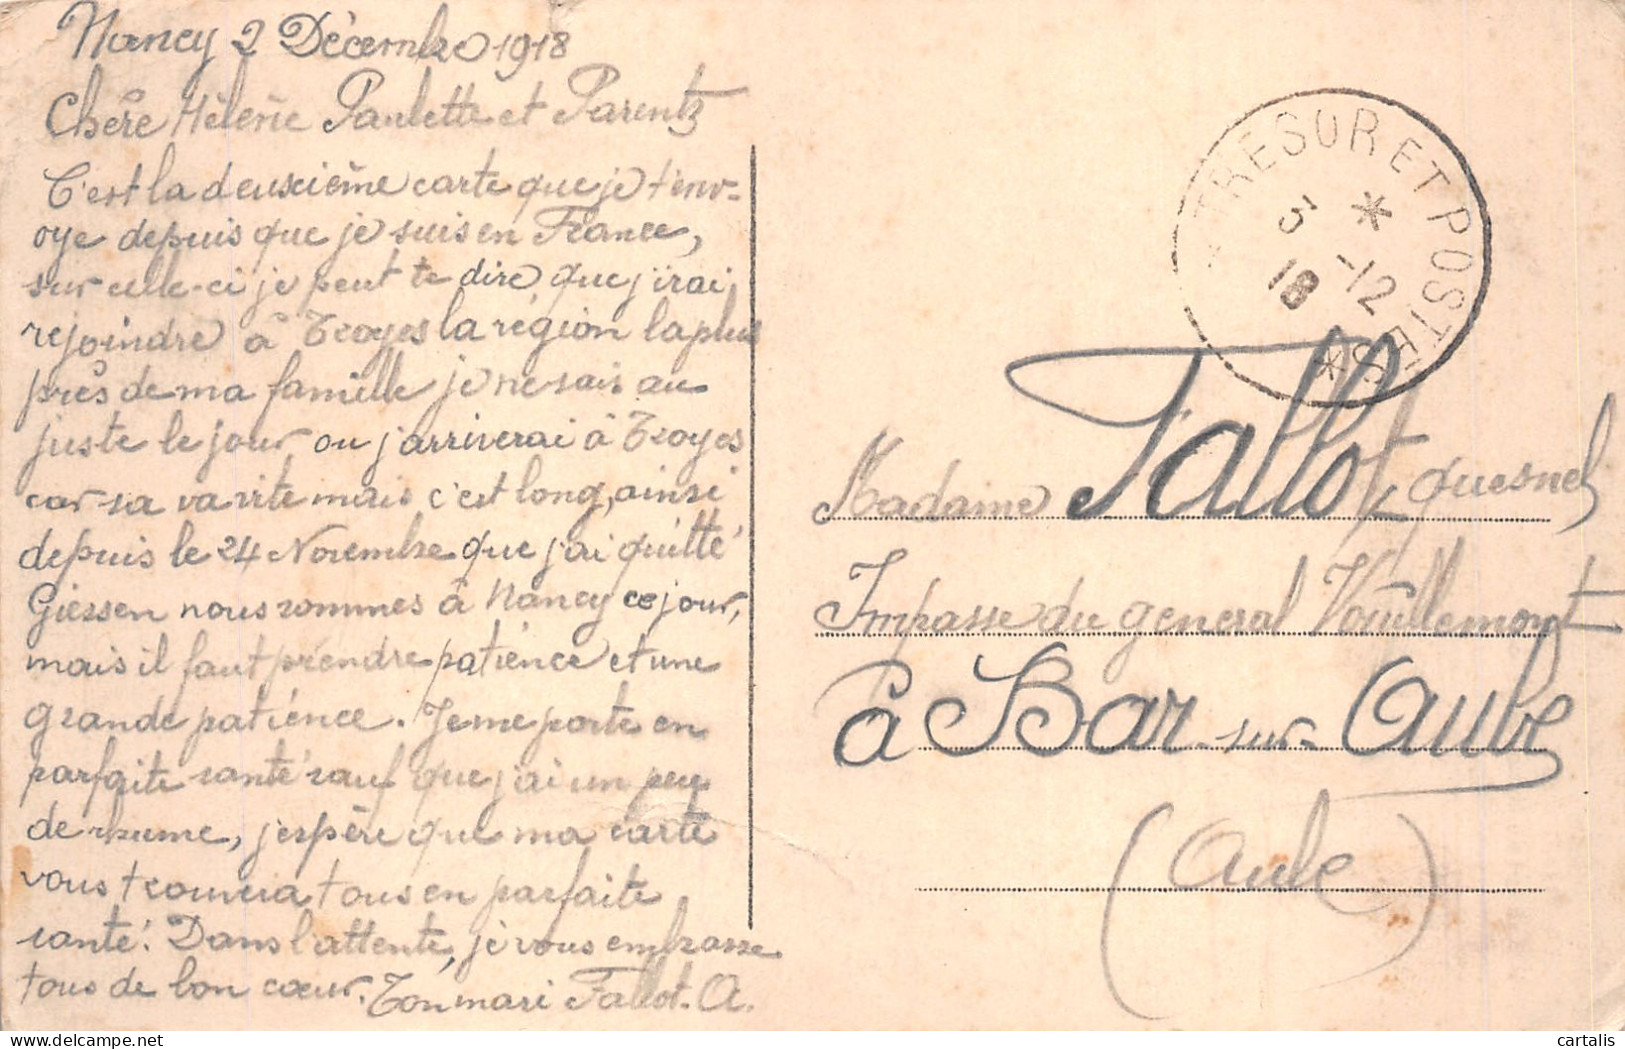 Nancy 2 Décembre 1918
Chère Hélène Paulette et Parents
C'est la deuxième carte que je t'env-
oye depuis que je suis en France,
sur celle-ci je peut te dire que j'irai
rejoindre à Troyes la région la plus
près de ma famille je ne sais au
juste le jour ou j'arriverai à Troyes
car sa va vite mais c'est long, ainsi
depuis le 24 Novembre que j'ai quitté
Giessen nous sommes à Nancy ce jour,
mais il faut prendre patience et une
grande patience. Je me porte en
parfaite santé sauf que j'ai un peu
de rhume, j'espère que ma carte
vous trouvera tous en parfaite
santé. Dans l'attente, je vous embrasse
tous de bon cœur. Ton mari Fallot. A.
TRESOR ET POSTES
3 -12
18
Madame Fallot Quesnel
Impasse du general Vouillemont
à Bar-sur-Aube
(Aube)
© cartalis | delcampe.net